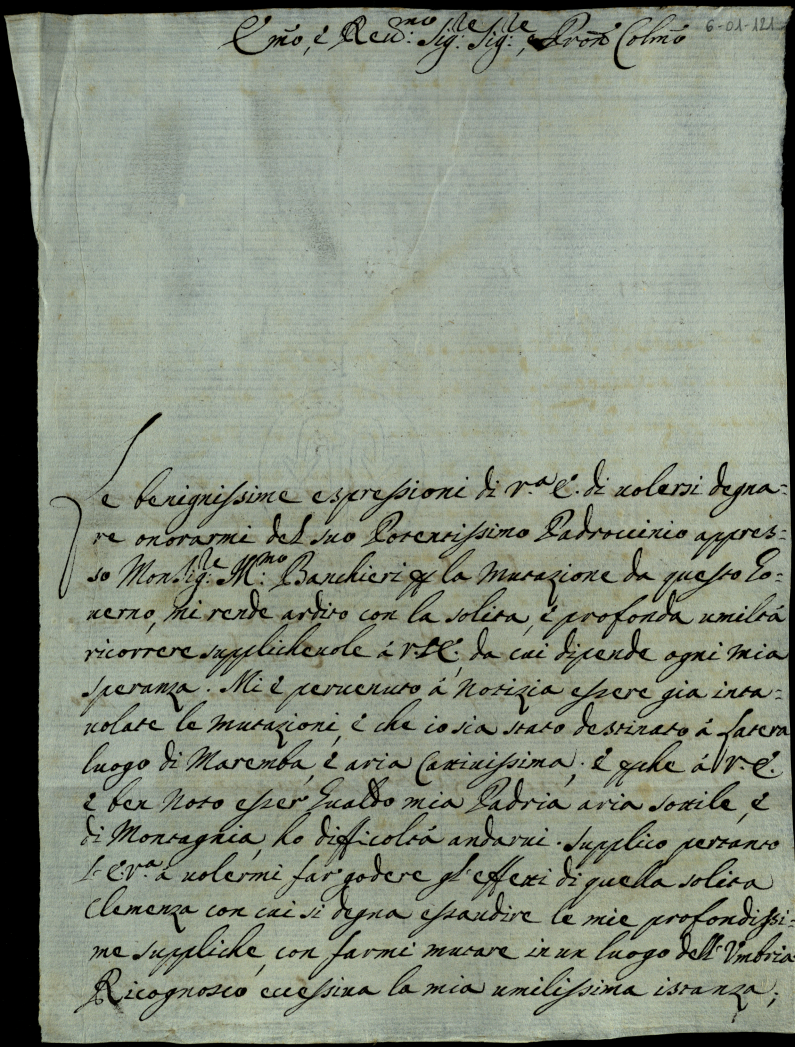 6-01-121
Emo, è Reu:mo Sig:re Sig:re, e Pron Colmo
Le benignissime espressioni di V.a E. di uolersi degna=
re onorarmi del suo Potentissimo Padrocinio appres=
so Monsig:re M:mo Banchieri p la Mutazione da questo Go=
uerno, mi rende ardito con la solita, è profonda umiltá
ricorrere supplicheuole á V.ra E., da cui dipende ogni mia
speranza. Mi è peruenuto á Notizia essere gia inta=
uolate le mutazioni, è che io sia stato destinato á
luogo di Maremba, è aria Cattiuissima; è pche á V.E.
è ben Noto esser Gualdo mia Padria, aria sottile, è
di Montagnia, ho difficoltá andarui. Supplico pertanto
l'E.V.a á uolermi far godere gl'effetti di quella solita
Clemenza con cui si degna essaudire le mie profondissi=
me suppliche, con farmi mutare in un luogo dell'Vmbria.
Ricognosco eccessiua la mia umilissima istanza;